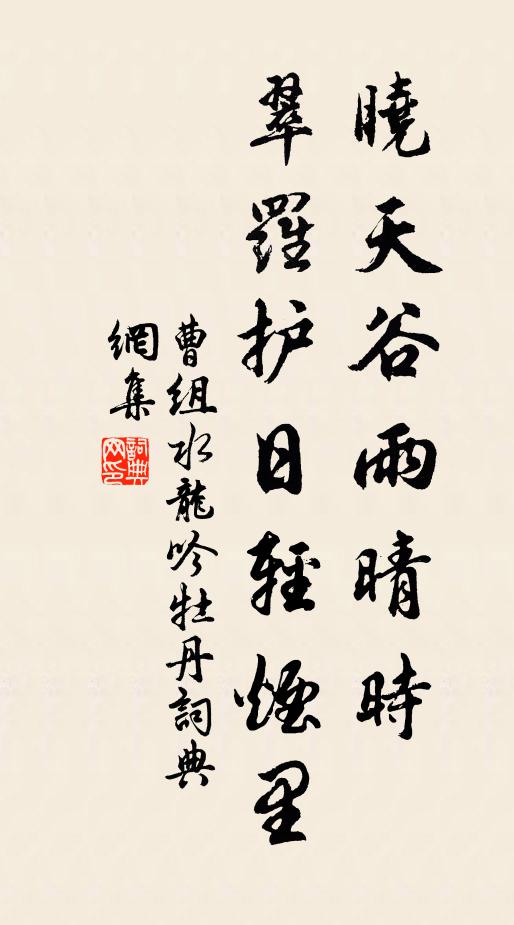 曉天谷雨晴時
翠羅护日輕煙里
曹组水龍吟牡丹詞典
網集
詞典網印